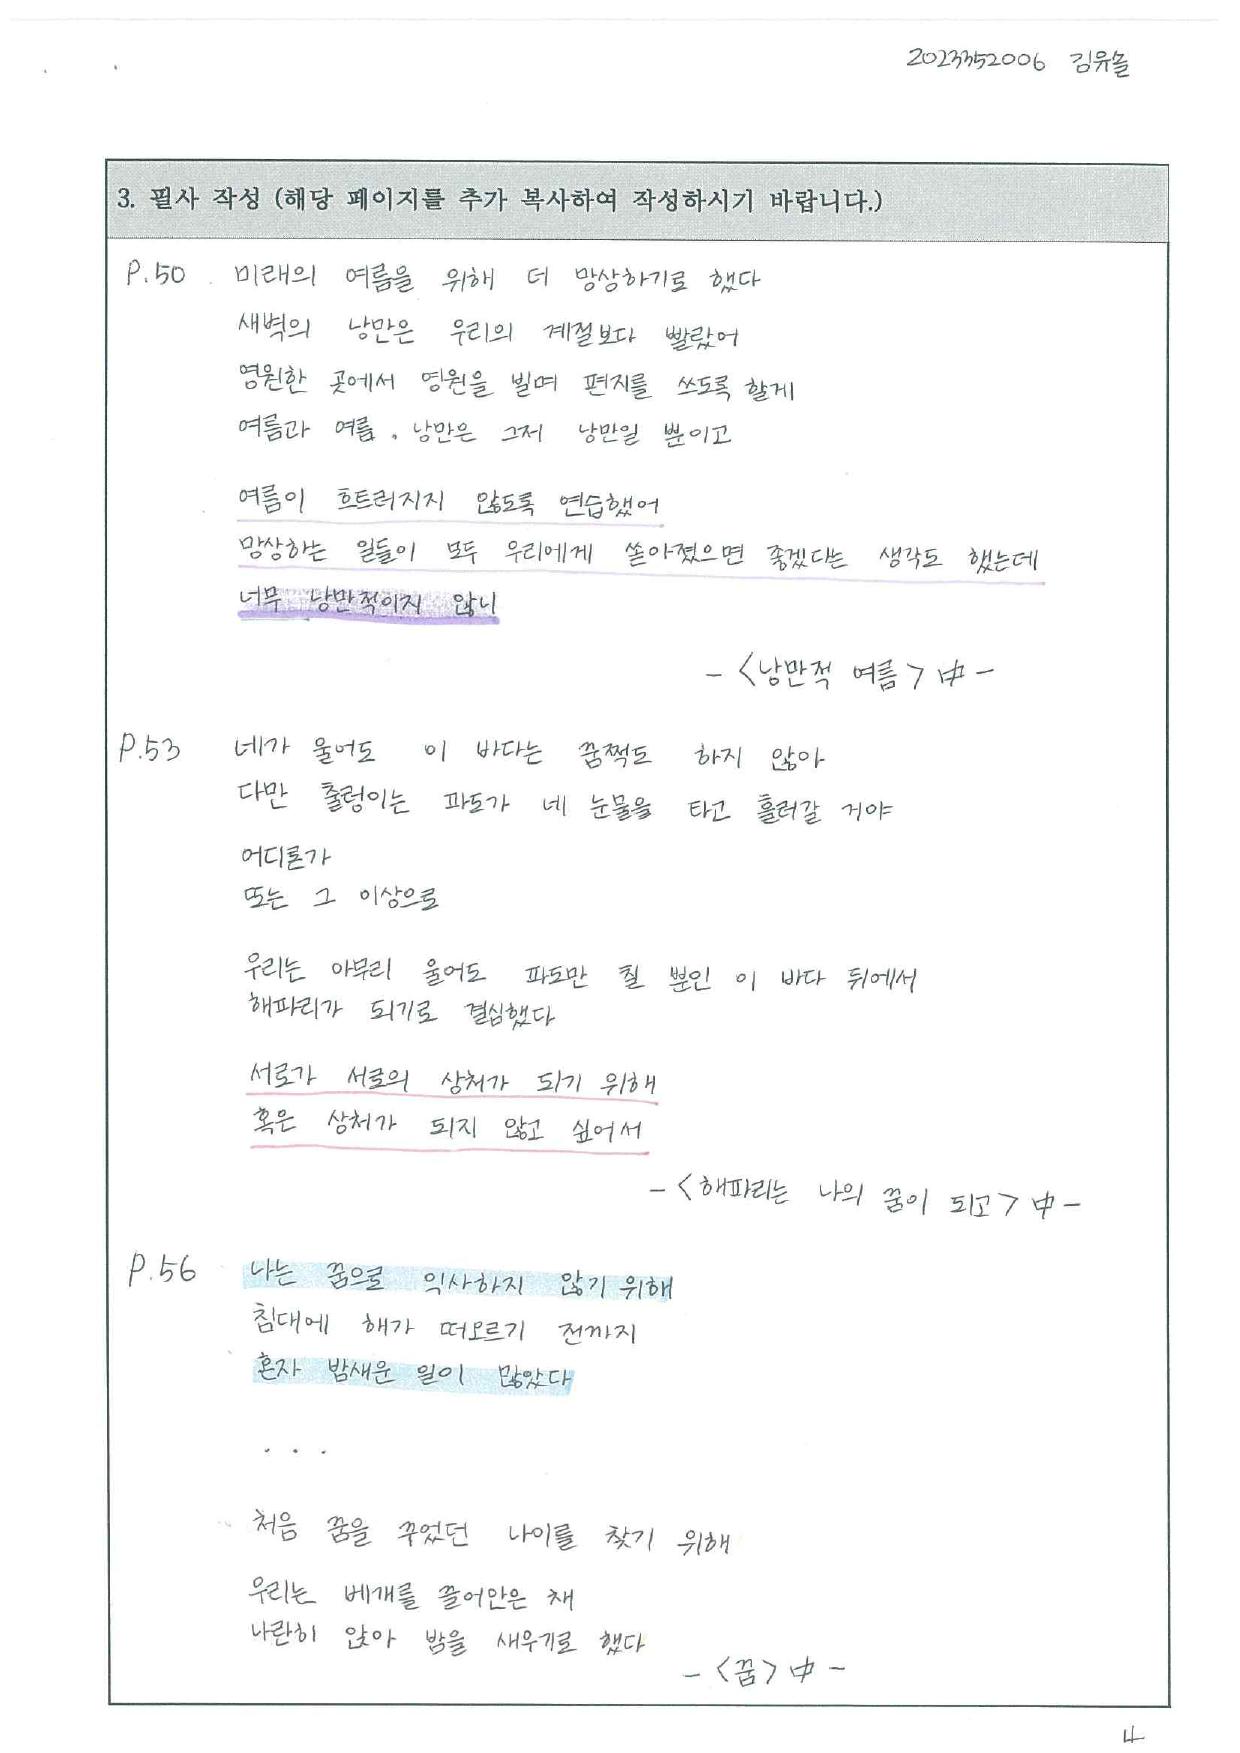 2023352006 김유솔
3. 필사 작성 (해당 페이지를 추가 복사하여 작성하시기 바랍니다.)
P.50 미래의 여름을 위해 더 망상하기로 했다
새벽의 낭만은 우리의 계절보다 빨랐어
영원한 곳에서 영원을 빌며 편지를 쓰도록 할게
여름과 여름, 낭만은 그저 낭만일 뿐이고
여름이 흐트러지지 않도록 연습했어
망상하는 일들이 모두 우리에게 쏟아졌으면 좋겠다는 생각도 했는데
너무 낭만적이지 않니
- <낭만적 여름> 中 -
P.53 네가 울어도 이 바다는 꿈쩍도 하지 않아
다만 출렁이는 파도가 네 눈물을 타고 흘러갈 거야
어디론가
또는 그 이상으로
우리는 아무리 울어도 파도만 칠 뿐인 이 바다 뒤에서
해파리가 되기로 결심했다
서로가 서로의 상처가 되기 위해
혹은 상처가 되지 않고 싶어서
- <해파리는 나의 꿈이 되고> 中 -
P.56 나는 꿈으로 익사하지 않기 위해
침대에 해가 떠오르기 전까지
혼자 밤새운 일이 많았다
...
처음 꿈을 꾸었던 나이를 찾기 위해
우리는 베개를 끌어안은 채
나란히 앉아 밤을 새우기로 했다
- <꿈> 中 -
4